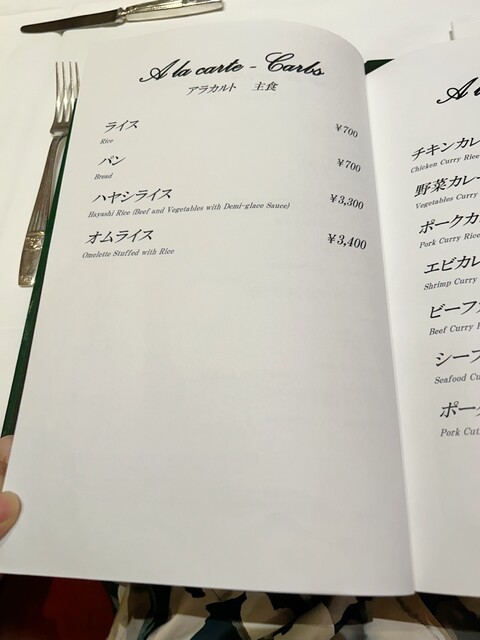 A la carte - Carbs
アラカルト 主食
ライス ¥700
Rice
パン ¥700
Bread
ハヤシライス ¥3,300
Hayashi Rice (Beef and Vegetables with Demi-glace Sauce)
オムライス ¥3,400
Omelette Stuffed with Rice
A l
チキンカレ
Chicken Curry Rice
野菜カレー
Vegetables Curry
ポークカ
Pork Curry Rice
エビカレ
Shrimp Curry
ビーフ
Beef Curry
シーフ
Seafood Cu
ポーク
Pork Cut